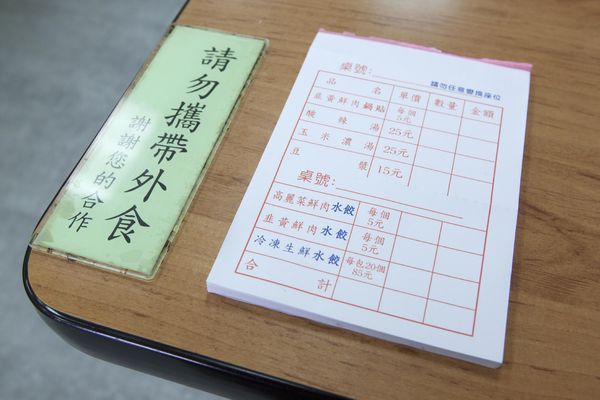 請勿攜帶外食
謝謝您的合作
桌號:
請勿任意變換座位
品名 單價 數量 金額
韭黃鮮肉鍋貼 每個5元
酸辣湯 25元
玉米濃湯 25元
豆漿 15元
桌號:
高麗菜鮮肉水餃 每個5元
韭黃鮮肉水餃 每個5元
冷凍生鮮水餃 每包20個85元
合計